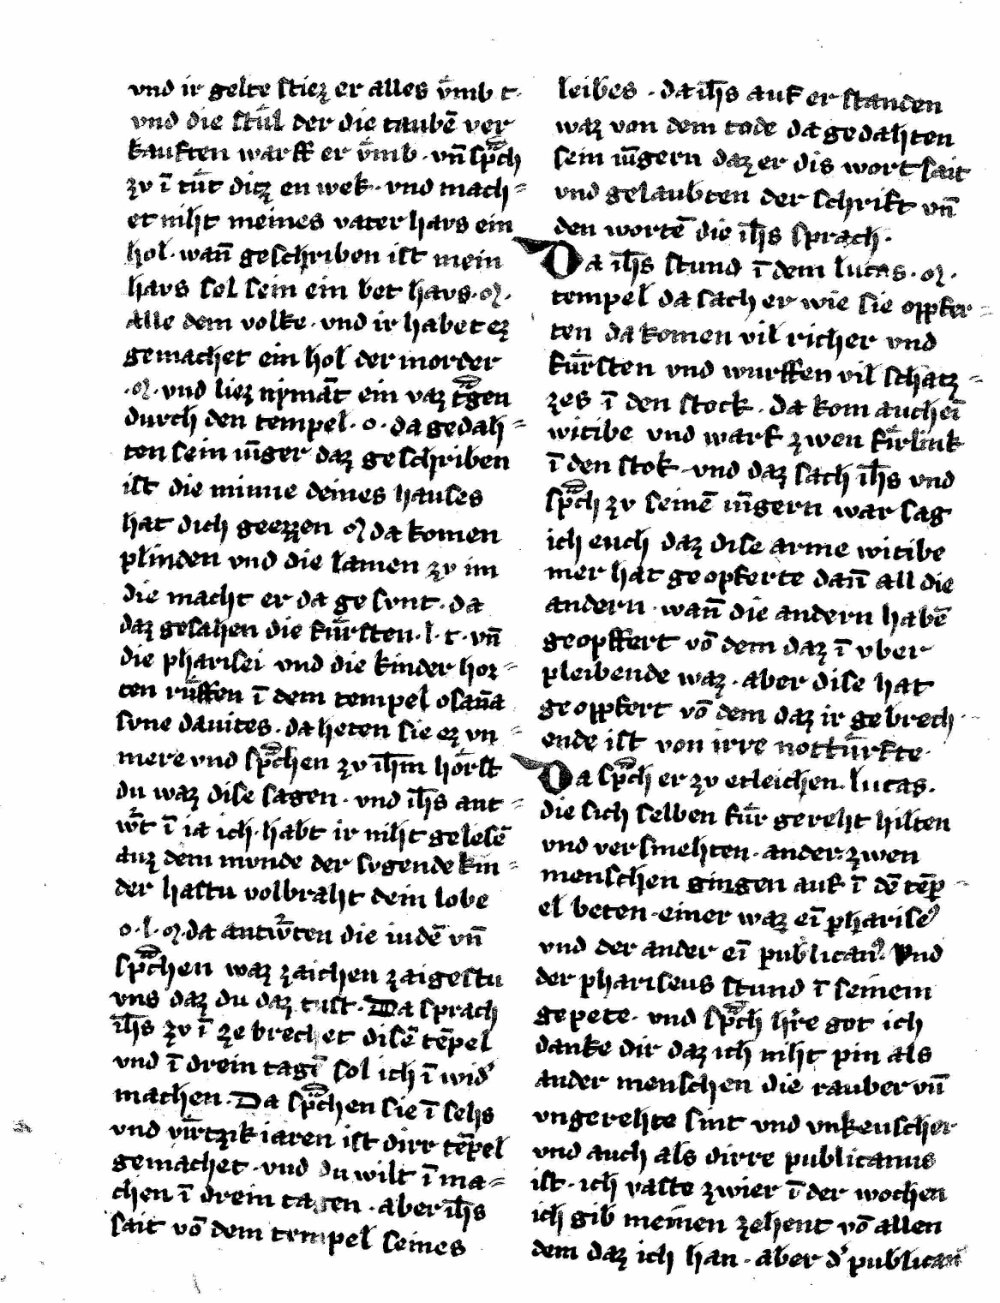 vnd ir gelte stiez er alles v̄mb t·
vnd die stul der die taubē ver
kauften warff er v̄mb · vn̄ sp̄ch
zv ī tut ditz en wek · vnd mach⸗
et niht meines vater havs ein
hol · wan̄ geschriben ist mein
havs sol sein ein bet havs · m ·
alle dem volke · vnd ir habet ez
gemachet ein hol der morder
· m · vnd liez nymāt ein vaz t̄gen
durch den tempel · o · da gedah⸗
ten sein iūger daz geschriben
ist die minne deines hauses
hat dich geezzen m da komen
plinden vnd die lamen zv im
die macht er da gesvnt · da
daz gesahen die fürsten · l · t · vn̄
die pharisei vnd die kinder hor⸗
ten rüffen ī dem tempel osan̄a
svne davites · da heten sie ez vn
mere vnd sp̄chen zv ih̄m hörst
du waz dise sagen · vnd ih̄s ant⸗
w̄t ī ia ich · habt ir niht gelesē
auz dem munde der svgende kin⸗
der hastu volbraht dein lobe
o · l · m da antw̄ten die iudē vn̄
sp̄chen waz zaichen zaigestu
vns daz du daz tust · Da sprach
ih̄s zv ī zebrechet disē tēpel
vnd ī drein tagī sol ich ī wid͛
machen · Da sp̄chen sie ī sehs
vnd vīrtzik iaren ist dirr tēpel
gemachet · vnd du wilt ī ma⸗
chen ī drein tagen · aber ih̄s
sait vō dem tempel seines
leibes · da ih̄s auf erstanden
waz von dem tode da gedahten
sein iūgern daz er dis wort sait
vnd gelaubten der schrift vn̄
den wortē die ih̄s sprach ·
Da ih̄s stund ī dem lucas · m ·
tempel da sach er wie sie opfer⸗
ten da komen vil richer vnd
fürsten vnd wurffen vil schatz⸗
zes ī den stock · da kom auch eī
witibe vnd warf zwen fīrlink
ī den stok · vnd daz sach ih̄s vnd
sp̄ch zv seinē iūgern war sag
ich euch daz dise arme witibe
mer hat geopferte dan̄ all die
andern · wan̄ die andern habē
geopffert vō dem daz ī vber
pleibende waz · aber dise hat
geopfert vō dem daz ir gebrech
ende ist von irre notturfte ·
Da sp̄ch er zv etleichen · lucas ·
die sich selben für gereht hilten
vnd versmehten · ander · zwen
menschen gingen auf ī dē tēp⸗
el beten · einer waz eī pharise͛
vnd der ander eī publican͛ · Vnd
der phariseus stund ī seinem
gepete · vnd sp̄ch h̄re got ich
danke dir daz ich niht pin als
ander menschen die rauber vn̄
vngerehte sint vnd vnkeuscher
vnd auch als dirre publicanus
ist · ich vaste zwier ī der wochen
ich gib meinen zehent vō allen
dem daz ich han · aber d͛ publican͛